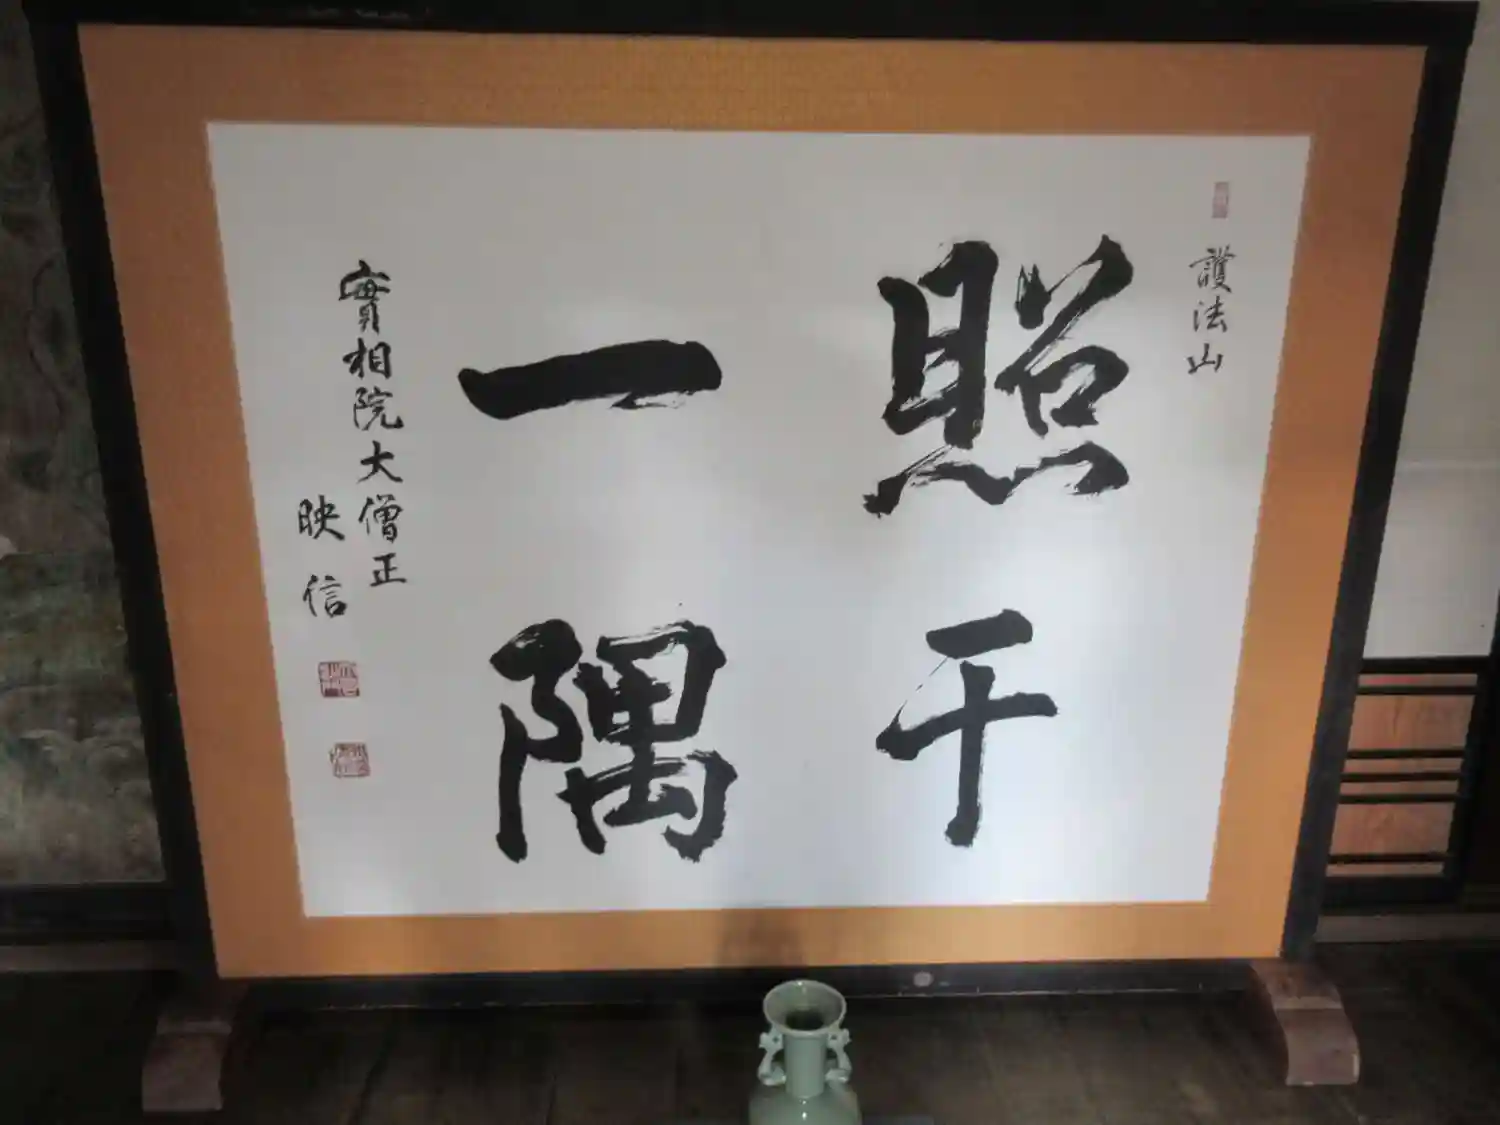 護法山
照干
一隅
實相院大僧正
映信